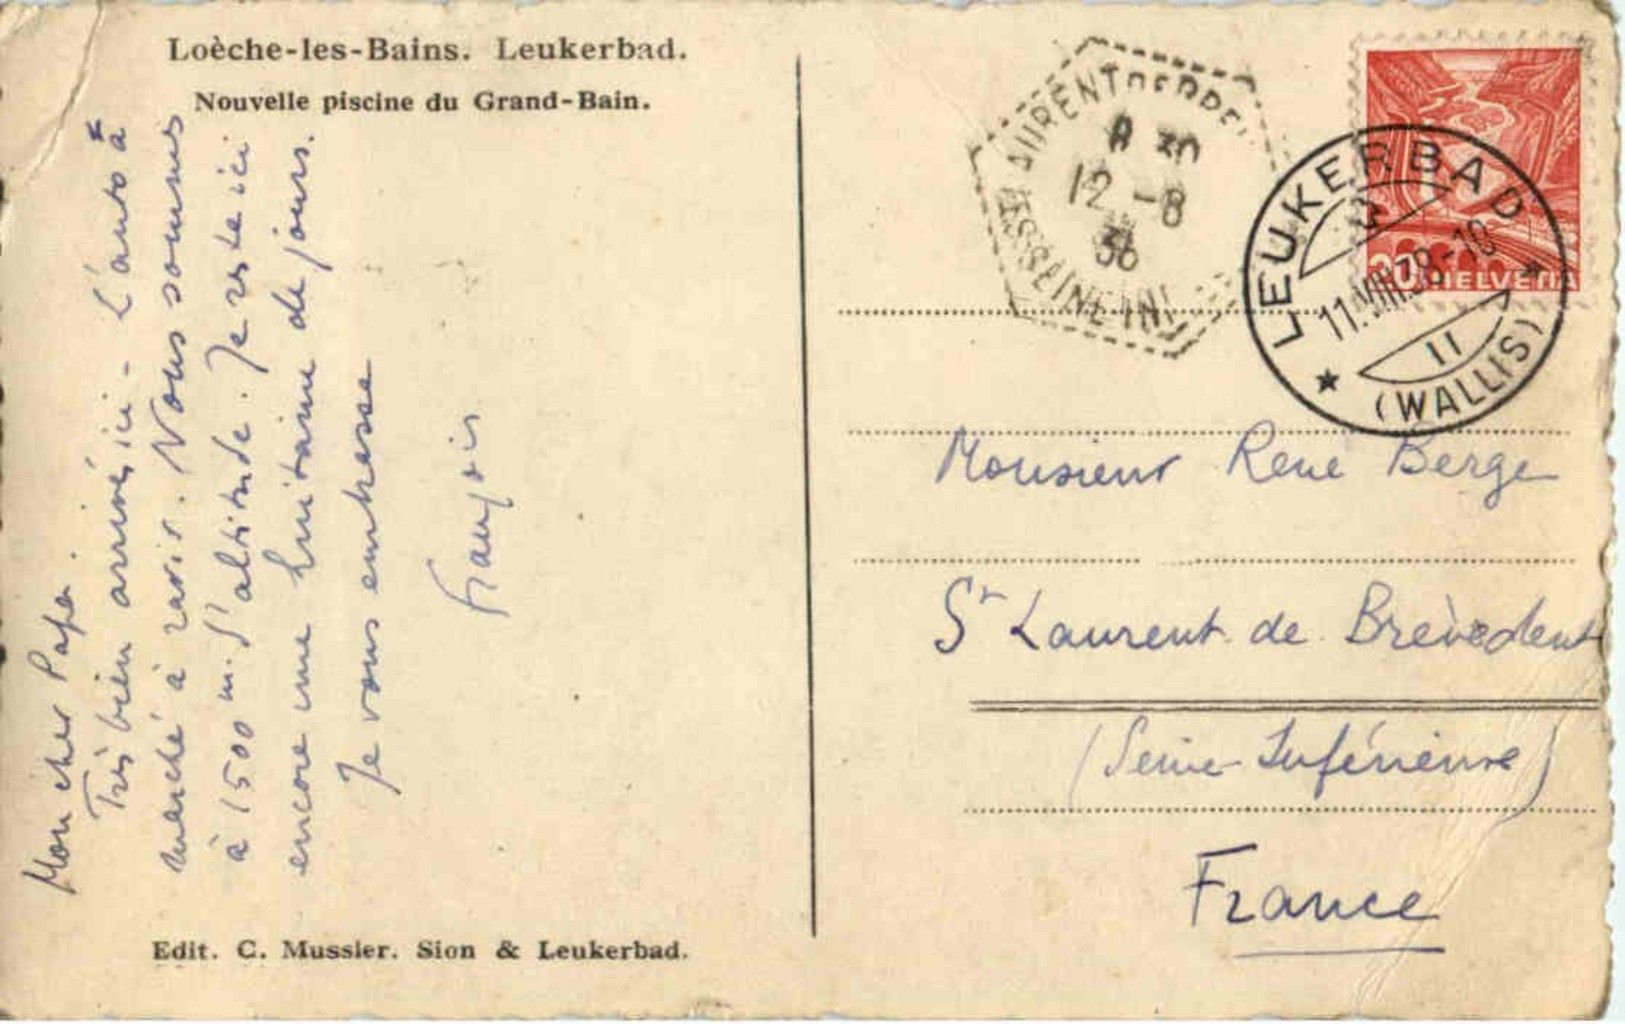 Loèche-les-Bains. Leukerbad.
Nouvelle piscine du Grand-Bain.
Mon cher Papa.
Très bien arrivés ici - L'auto a
marché à ravir. Nous sommes
à 1500 m. d'altitude. Je reste ici
encore une huitaine de jours.
Je vous embrasse
François
Edit. C. Mussler. Sion & Leukerbad.
12 -8
38
LEUKERBAD
11.VIII.38-10
(WALLIS)
20 HELVETIA
Monsieur Rene Berge
St Laurent de Brèvedent
(Seine-Inférieure)
France